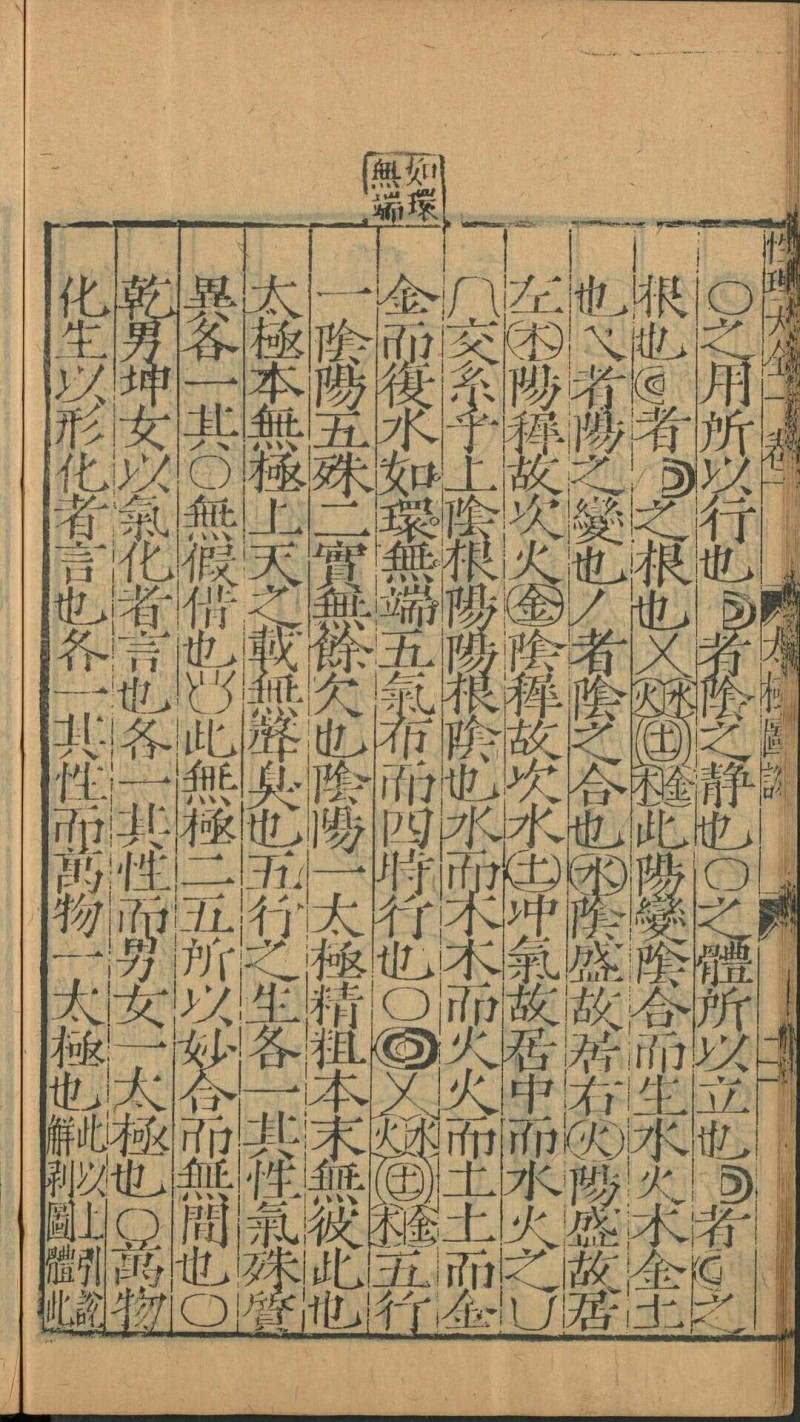 如環
無端
性理大全一卷 太極圖說 二
○之用所以行也☽者陰之静也○之體所以立也☽者☾之
根也☾者☽之根也㐅水火土金木此陽變陰合而生水火木金土
也乀者陽之變也丿者陰之合也水陰盛故居右火陽盛故居
左木陽穉故次火金陰穉故次水土冲氣故居中而水火之∪
∩交系乎上陰根陽陽根陰也水而木木而火火而土土而金
金而復水如環無端五氣布而四時行也○◎㐅水火土金木五行
一陰陽五殊二實無餘欠也陰陽一太極精粗本末無彼此也
太極本無極上天之載無聲臭也五行之生各一其性氣殊質
異各一其○無假借也此無極二五所以妙合而無間也○
乾男坤女以氣化者言也各一其性而男女一太極也○萬物
化生以形化者言也各一其性而萬物一太極也此以上引說解剥圖體此